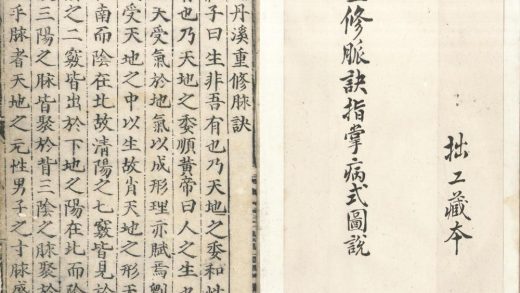 拙工藏本
修脈訣指掌病式圖說
丹溪重修脉訣
子曰生非吾有也乃天地之委和性
有也乃天地之委順黃帝曰人之生也
天受氣於地氣以成形理亦賦焉
受天地之中以生故肖天地之形天
南而陰在北故清陽之七竅皆見於
之二竅皆出於下地之陽在北而陰
三陽之脉皆聚於背三陰之脉聚於
乎脉者天地之元性男子之寸脉盛